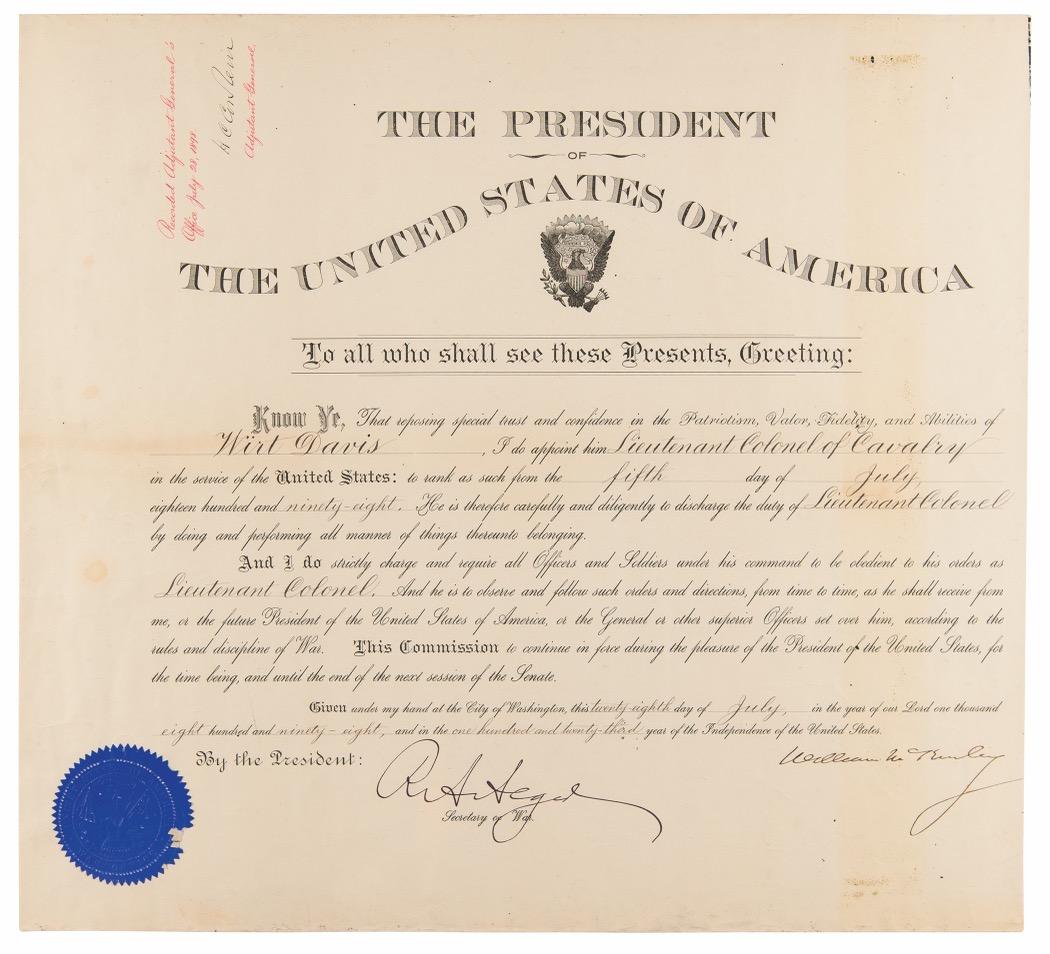 Recorded Adjutant General's
Office July 28, 1898
Adjutant General.
THE PRESIDENT
OF
THE UNITED STATES OF AMERICA
To all who shall see these Presents, Greeting:
Know Ye, That reposing special trust and confidence in the Patriotism, Valor, Fidelity, and Abilities of
Wirt Davis, I do appoint him Lieutenant Colonel of Cavalry
in the service of the United States: to rank as such from the fifth day of July,
eighteen hundred and ninety-eight. He is therefore carefully and diligently to discharge the duty of Lieutenant Colonel
by doing and performing all manner of things thereunto belonging.
And I do strictly charge and require all Officers and Soldiers under his command to be obedient to his orders as
Lieutenant Colonel. And he is to observe and follow such orders and directions, from time to time, as he shall receive from
me, or the future President of the United States of America, or the General or other superior Officers set over him, according to the
rules and discipline of War. This Commission to continue in force during the pleasure of the President of the United States, for
the time being, and until the end of the next session of the Senate.
Given under my hand at the City of Washington, this twenty-eighth day of July, in the year of our Lord one thousand
eight hundred and ninety-eight, and in the one hundred and twenty-third year of the Independence of the United States.
By the President:
William McKinley
R A Alger
Secretary of War.